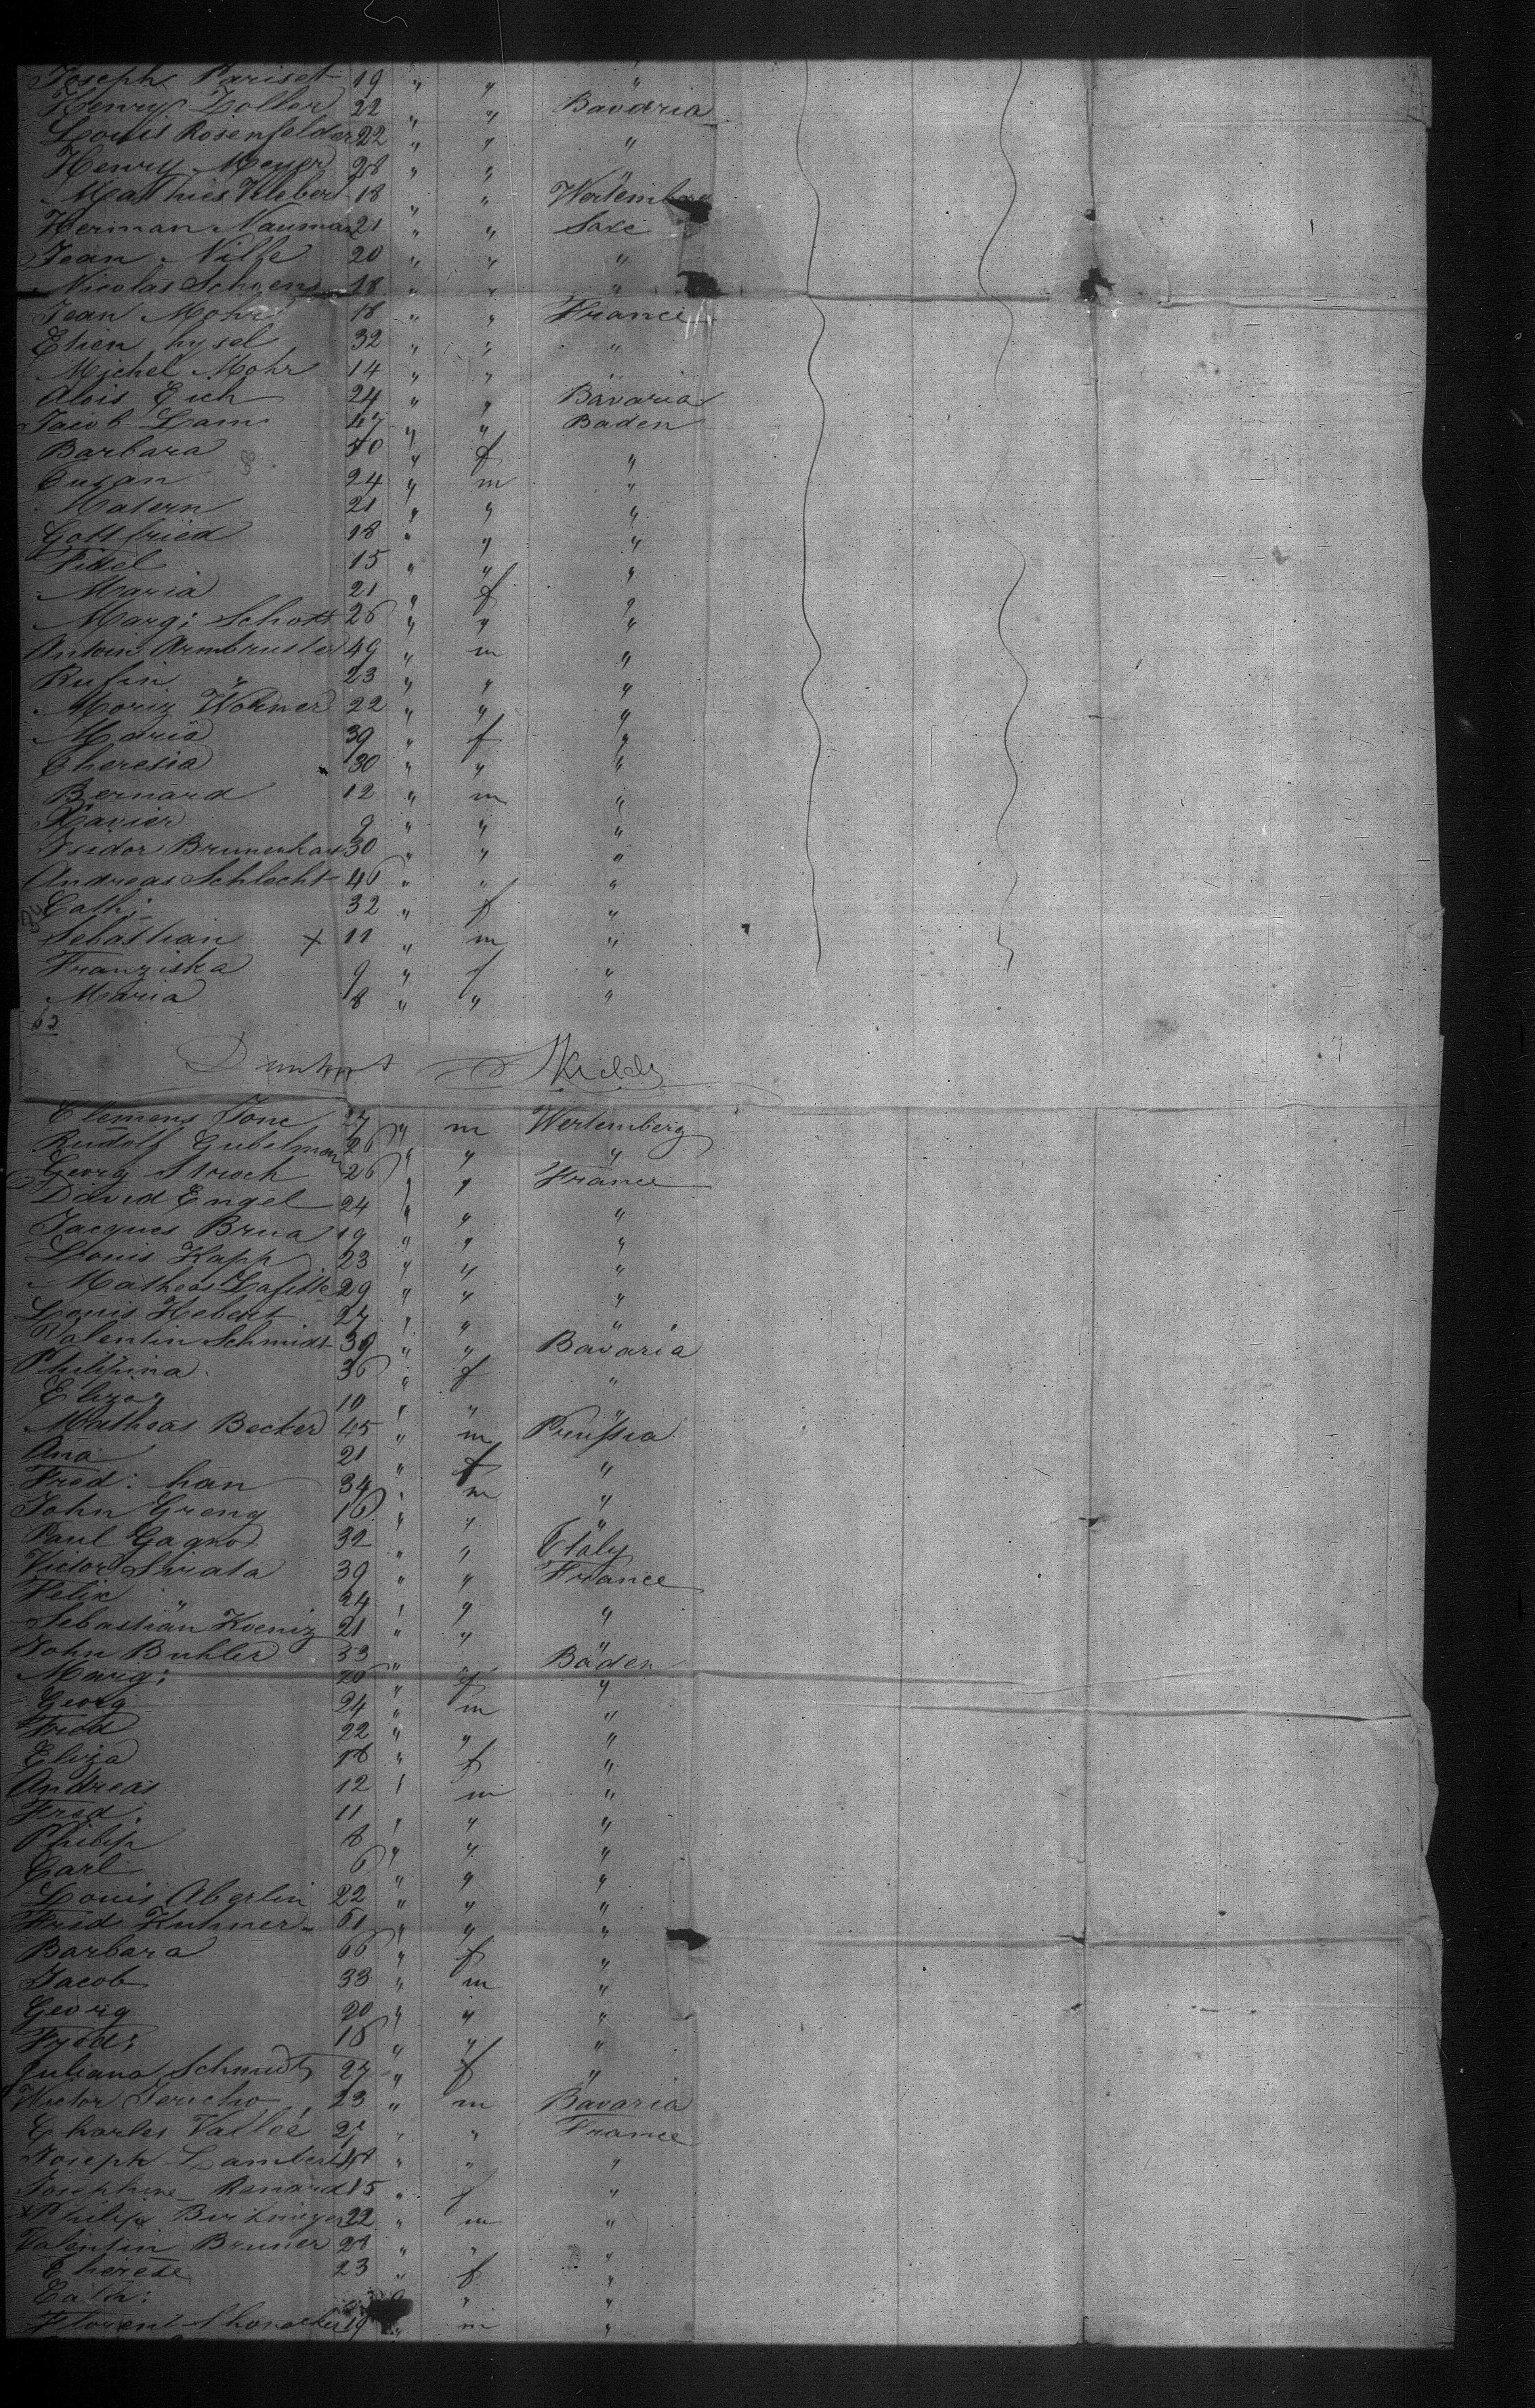 Joseph Pariset 19 " " "
Henry Zoller 22 " " Bavaria
Louis Rosenfelder 22 " " "
Henry Meyer 28 " " "
Mathies Klebert 18 " " Wertemberg
Herman Nauman 21 " " Saxe
Jean Nille 20 " " "
Nicolas Schoens 18 " " "
Jean Mohr 18 " " France
Etien hysel 32 " " "
Michel Mohr 14 " " "
Alois Eich 24 " " Bavaria
Jacob Lam 47 " " Baden
Barbara 40 " f "
24 " m "
Matern 21 " " "
Gottfried 18 " " "
Fidel 15 " " "
Maria 21 " f "
Marg: Schott 26 " " "
Antoin Armbruster 49 " m "
Rufin " 23 " " "
Moriz Wohner 22 " " "
Maria 39 " f "
Theresia 30 " " "
Bernard 12 " m "
Xavier 9 " " "
Isidor 30 " " "
Andreas Schlecht 46 " " "
Cath: 32 " f "
Sebastian x 11 " m "
Franziska 9 " f "
Maria 8 " " "
62
Clemens Jone 27 " m Wertemberg
Rudolf Gubelman 26 " " "
Georg Stroch 26 " " France
David Engel 24 " " "
Jacques Brua 19 " " "
Louis Kapp 23 " " "
Matheas Lafitte 29 " " "
Louis Hebert 27 " " "
Valentin Schmidt 39 " " Bavaria
Philipina 36 " f "
Eliza 10 " " "
Matheas Becker 45 " m Prussia
Ana 21 " f "
Fred: han 34 " m "
John Greng 16 " " "
Paul Gagno 32 " " Italy
Victor Sirata 39 " " France
Felix " 24 " " "
Sebastian Koenig 21 " " "
John Buhler 53 " " Baden
Marg: 20 " f "
Georg 24 " m "
Fred 22 " " "
Eliza 18 " f "
Andreas 12 " m "
Fred: 11 " " "
Philip 8 " " "
Carl 6 " " "
Louis Aberlin 22 " " "
Fred Kuhner 61 " " "
Barbara 66 " f "
Jacob 33 " m "
Georg 20 " " "
Fred: 16 " " "
Juliana Schmidt 27 " f "
Victor Jericho 23 " m Bavaria
Charles Vallée 27 " " France
Joseph Lambert 48 " " "
Josephine Renard 15 " f "
Philip 22 " m "
Valentin Bruner 28 " " "
Therese 23 " f "
Cath: " "
Florent 19 " m "